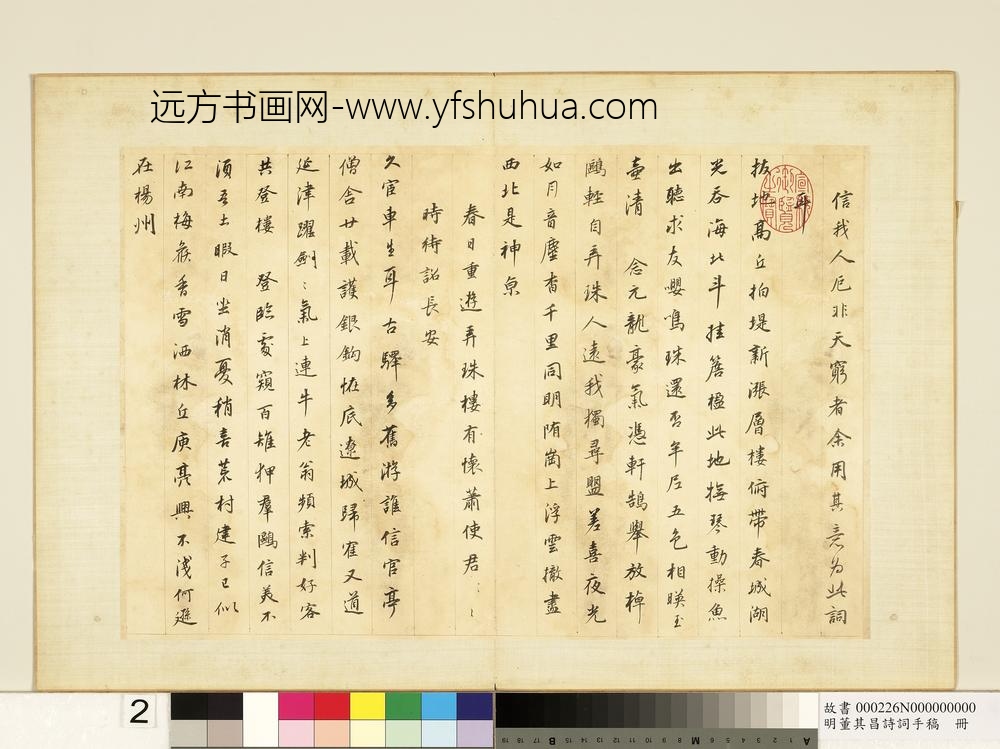 远方书画网-www.yfshuhua.com
信我人厄非天窮者余用其意為此詞
拔地高丘拍堤新漲層樓俯帶春城湖
光吞海北斗挂簷楹此地撫琴動操魚
出聽求友嚶鳴珠還否年尼五色相暎玉
壺清 念元龍豪氣憑軒鵠舉放棹
鷗輕自弄珠人遠我獨尋盟差喜夜光
如月音塵杳千里同明陏崗上浮雲撤盡
西北是神京
春日重遊弄珠樓有懷蕭使君〻〻
時待詔長安
久宦車生耳古驛多舊游誰信官亭
僧舍廿載護銀鈎恠底遼城歸寉又道
延津躍劍〻氣上連牛老翁頻索判好客
共登樓 登臨處窺百雉狎羣鷗信美不
須吾土暇日坐消憂稍喜菜村建子已似
江南梅蕊香雪洒林丘庾亮興不淺何遜
在楊州
2
故書 000226N000000000
明董其昌詩詞手稿 冊